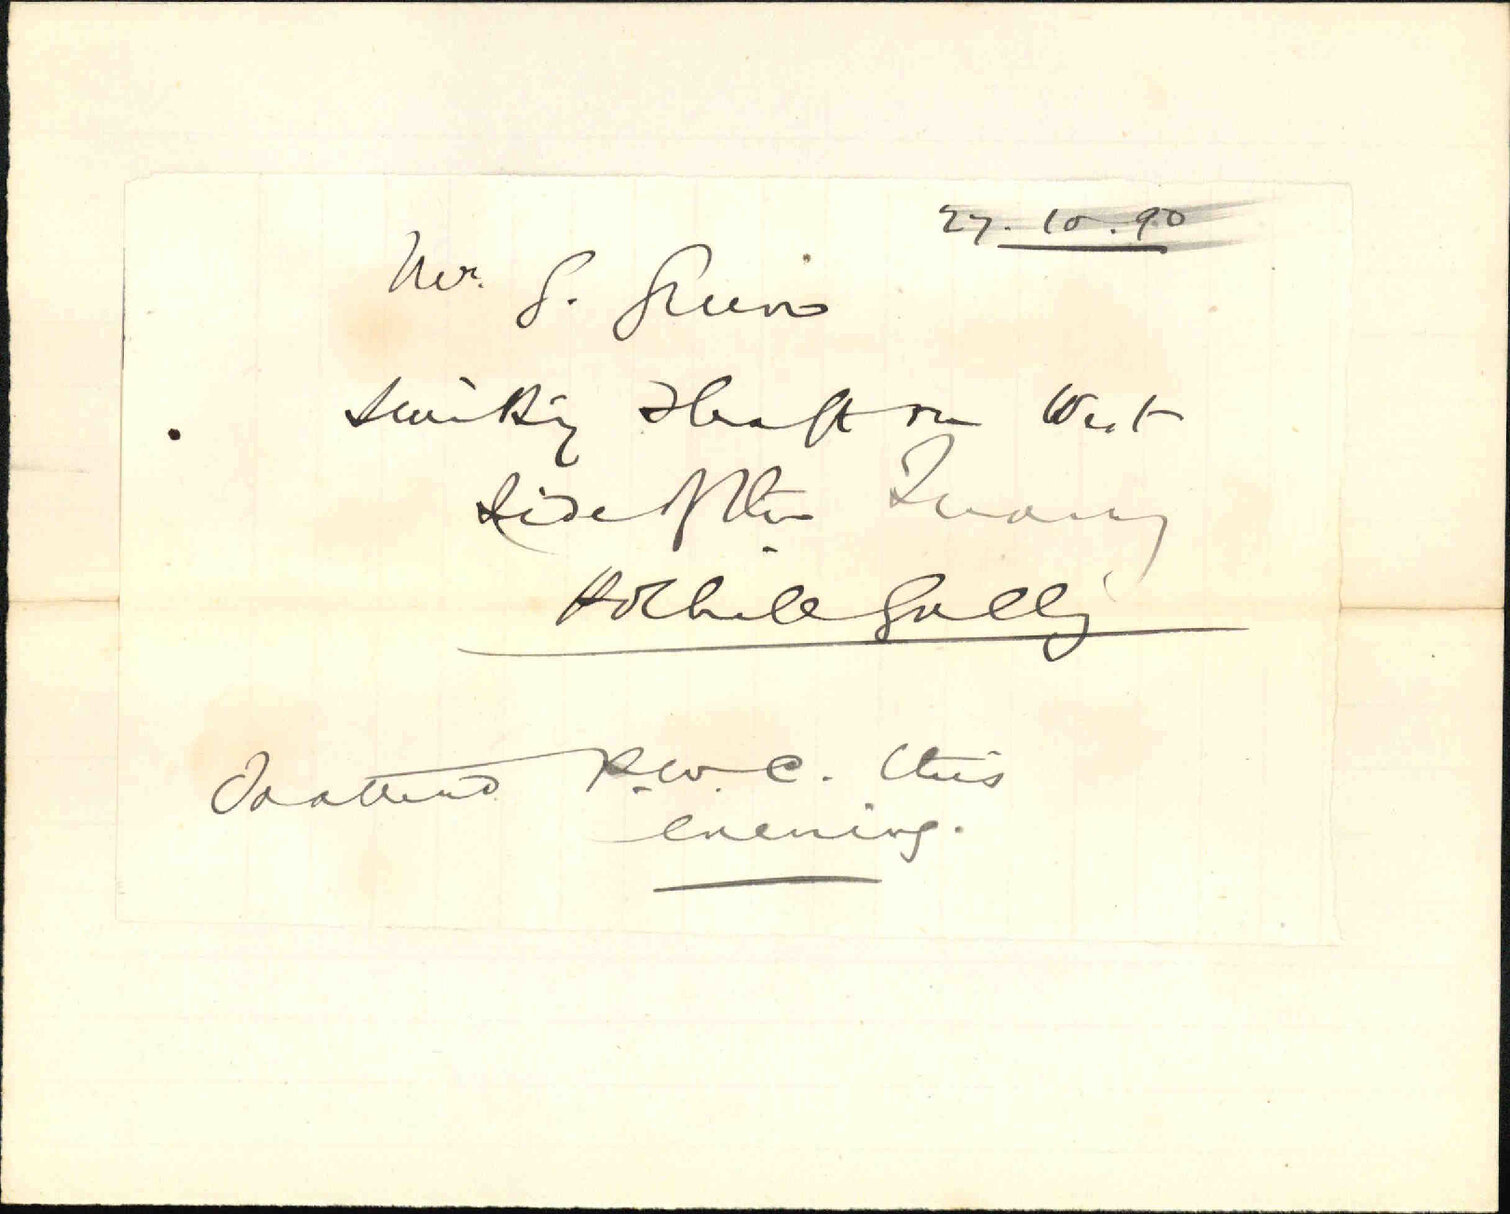 27.10.90
Mr. G. Grein
Sinking Shaft on West
Side of the Quarry
Rothull Gully
To attend P.W.C. this
evening.